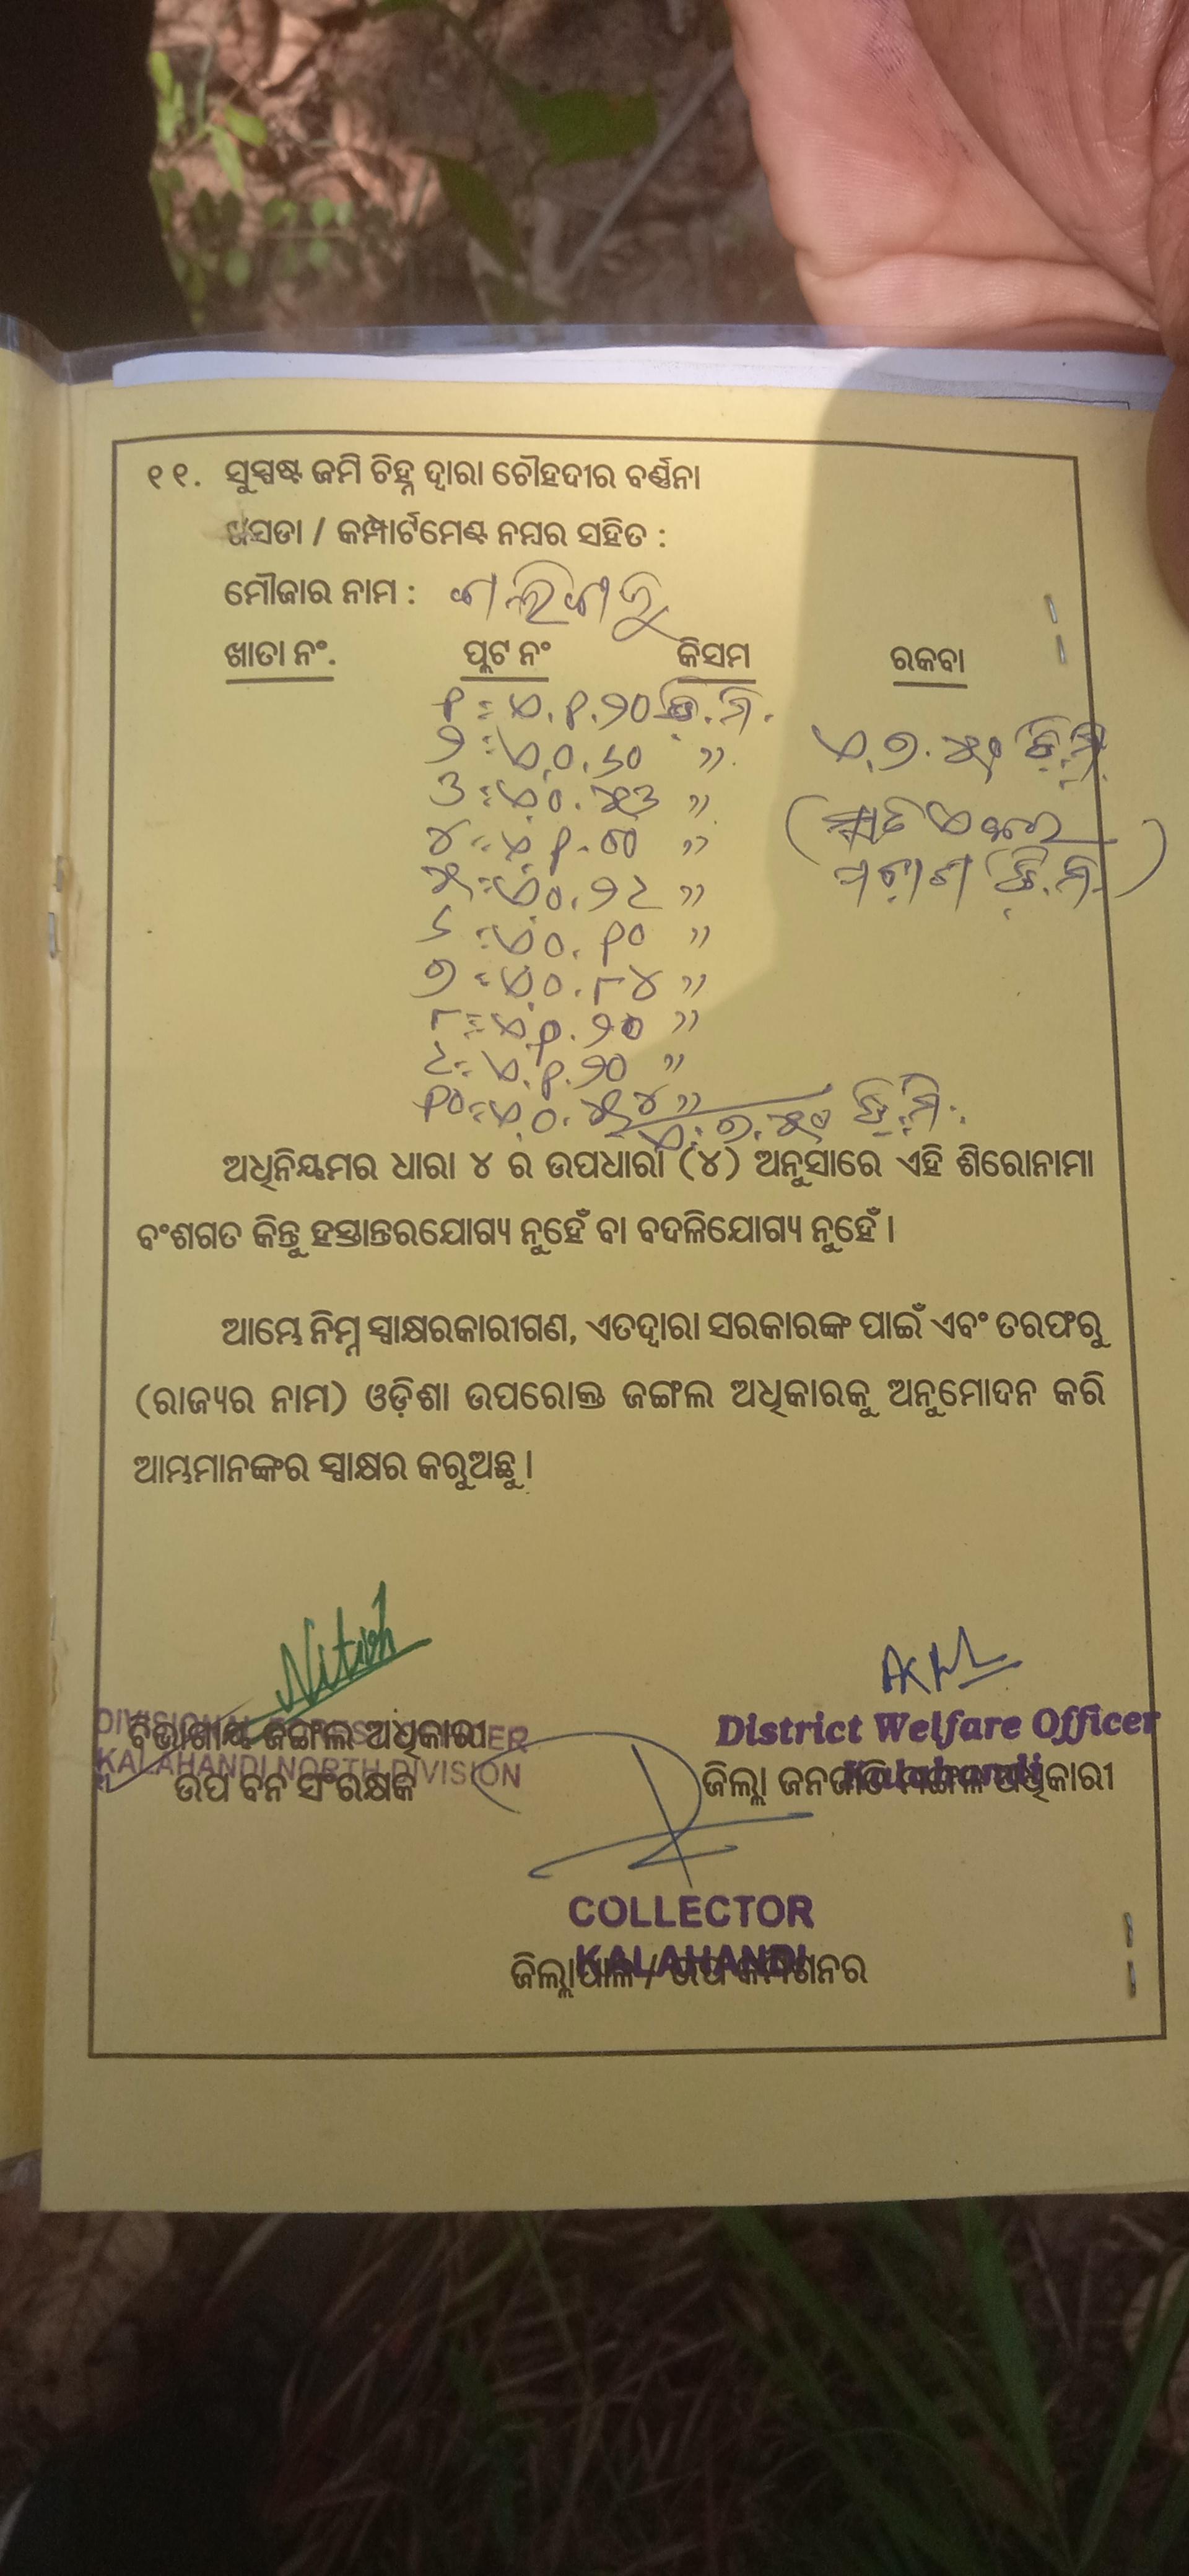 ୧୧. ସୁସ୍ପଷ୍ଟ ଜମି ଚିହ୍ନ ଦ୍ୱାରା ଚୌହଦୀର ବର୍ଣ୍ଣନା
ଖସଡା / କମ୍ପାର୍ଟମେଣ୍ଟ ନମ୍ବର ସହିତ :
ମୌଜାର ନାମ :
ଖାତା ନଂ. ପ୍ଲଟ ନଂ କିସମ ରକବା
୧ = ଏ.୧.୨୦ ଡି.ମି.
୨ = ଏ.୦.୬୦ "
ଏ.୭.୫୧ ଡି.ମି.
୩ = ଏ.୦.୫୩ "
୪ = ଏ.୧.୦୦ "
୫ = ଏ.୦.୨୯ "
୬ = ଏ.୦.୧୦ "
୭ = ଏ.୦.୮୪ "
୮ = ଏ.୧.୨୦ "
୯ = ଏ.୧.୨୦ "
୧୦ = ଏ.୦.୫୪ "
ଏ.୭.୫୦ ଡି.ମି.
ଅଧିନିୟମର ଧାରା ୪ ର ଉପଧାରା (୪) ଅନୁସାରେ ଏହି ଶିରୋନାମା
ବଂଶଗତ କିନ୍ତୁ ହସ୍ତାନ୍ତରଯୋଗ୍ୟ ନୁହେଁ ବା ବଦଳିଯୋଗ୍ୟ ନୁହେଁ ।
ଆମ୍ଭେ ନିମ୍ନ ସ୍ୱାକ୍ଷରକାରୀଗଣ, ଏତଦ୍ୱାରା ସରକାରଙ୍କ ପାଇଁ ଏବଂ ତରଫରୁ
(ରାଜ୍ୟର ନାମ) ଓଡ଼ିଶା ଉପରୋକ୍ତ ଜଙ୍ଗଲ ଅଧିକାରକୁ ଅନୁମୋଦନ କରି
ଆମ୍ଭମାନଙ୍କର ସ୍ୱାକ୍ଷର କରୁଅଛୁ ।
Nitish
DIVISIONAL FOREST OFFICER
ବିଭାଗୀୟ ଜଙ୍ଗଲ ଅଧିକାରୀ
KALAHANDI NORTH DIVISION
ଉପ ବନ ସଂରକ୍ଷକ
District Welfare Officer
Kalahandi
ଜିଲ୍ଲା ଜନଜାତି ମଙ୍ଗଳ ଅଧିକାରୀ
COLLECTOR
KALAHANDI
ଜିଲ୍ଲାପାଳ / ଉପ କମିଶନର